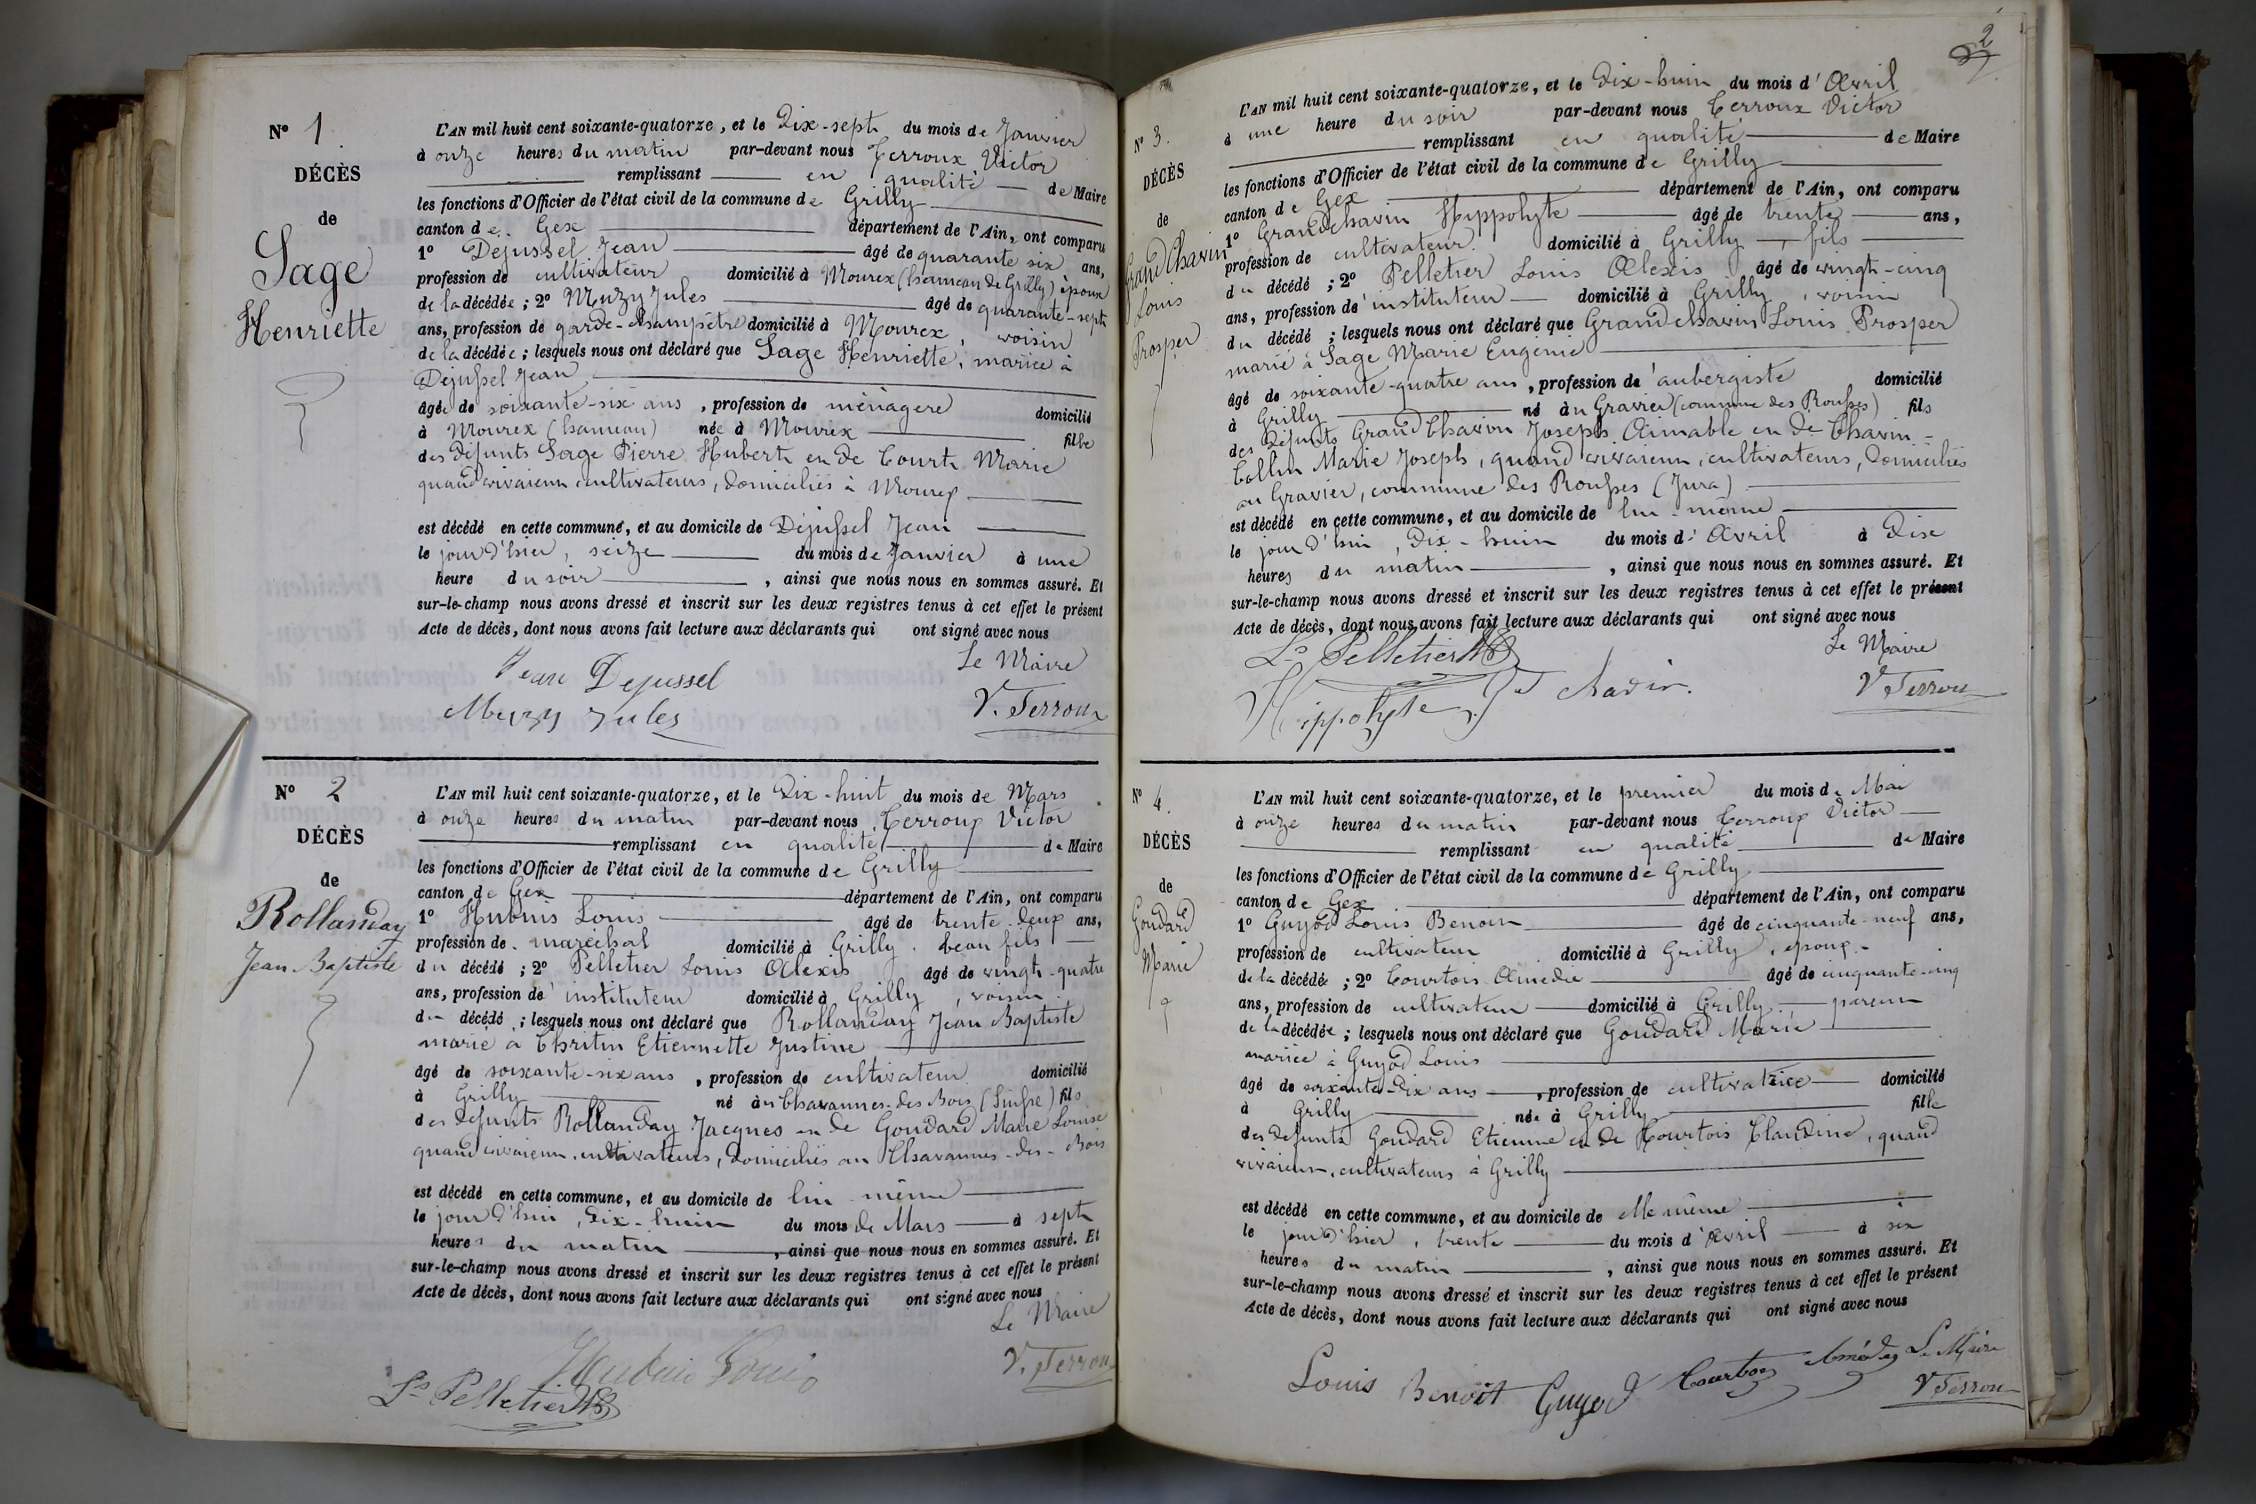 N° 1.
DÉCÈS
de
Sage
Henriette
L'AN mil huit cent soixante-quatorze, et le Dix-sept du mois de Janvier
à onze heures du matin par-devant nous Terroux Victor
remplissant en qualité de Maire
les fonctions d'Officier de l'état civil de la commune de Grilly
canton de Gex département de l'Ain, ont comparu
1° Dejussel Jean âgé de quarante six ans,
profession de cultivateur domicilié à Mourex (hameau de Grilly) époux
de la décédée ; 2° Muzy Jules âgé de quarante-sept
ans, profession de garde-champêtre domicilié à Mourex, voisin
de la décédée ; lesquels nous ont déclaré que Sage Henriette, mariée à
Dejussel Jean
âgée de soixante-six ans, profession de ménagère domicilié
à Mourex (hameau) née à Mourex fille
des défunts Sage Pierre Hubert et de Court Marie
quand vivaient cultivateurs, domiciliés à Mourex
est décédé en cette commune, et au domicile de Dejussel Jean
le jour d'hier, seize du mois de Janvier à une
heure du soir, ainsi que nous nous en sommes assuré. Et
sur-le-champ nous avons dressé et inscrit sur les deux registres tenus à cet effet le présent
Acte de décès, dont nous avons fait lecture aux déclarants qui ont signé avec nous
Le Maire
Jean Dejussel
Muzy Jules
V. Terroux
N° 2
DÉCÈS
de
Rollanday
Jean-Baptiste
L'AN mil huit cent soixante-quatorze, et le Dix-huit du mois de Mars
à onze heures du matin par-devant nous Terroux Victor
remplissant en qualité de Maire
les fonctions d'Officier de l'état civil de la commune de Grilly
canton de Gex département de l'Ain, ont comparu
1° Louis âgé de trente-deux ans,
profession de maréchal domicilié à Grilly, beau fils
du décédé ; 2° Pelletier Louis Alexis âgé de vingt-quatre
ans, profession d'instituteur domicilié à Grilly, voisin
du décédé ; lesquels nous ont déclaré que Rollanday Jean Baptiste
marié à Chritin Etiennette Justine
âgé de soixante-six ans, profession de cultivateur domicilié
à Grilly né à Chavannes-des-Bois (Suisse) fils
des défunts Rollanday Jacques et de Goudard Marie Louise
quand vivaient, cultivateurs, domiciliés au Chavannes-des-Bois
est décédé en cette commune, et au domicile de lui-même
le jour d'hui, dix-huit du mois de Mars à sept
heures du matin, ainsi que nous nous en sommes assuré. Et
sur-le-champ nous avons dressé et inscrit sur les deux registres tenus à cet effet le présent
Acte de décès, dont nous avons fait lecture aux déclarants qui ont signé avec nous
Le Maire
Louis
Ls Pelletier
V. Terroux
2
N° 3.
DÉCÈS
de
GrandChavin
Louis
Prosper
L'AN mil huit cent soixante-quatorze, et le Dix-huit du mois d'Avril
à une heure du soir par-devant nous Terroux Victor
remplissant en qualité de Maire
les fonctions d'Officier de l'état civil de la commune de Grilly
canton de Gex département de l'Ain, ont comparu
1° Grandchavin Hippolyte âgé de trente ans,
profession de cultivateur domicilié à Grilly, fils
du décédé ; 2° Pelletier Louis Alexis âgé de vingt-cinq
ans, profession d'instituteur domicilié à Grilly, voisin
du décédé ; lesquels nous ont déclaré que Grandchavin Louis Prosper
marié à Sage Marie Eugénie
âgé de soixante-quatre ans, profession d'aubergiste domicilié
à Grilly né au Gravier (commune des Rousses) fils
des défunts GrandChavin Joseph Aimable et de Chavin-
Collin Marie Joseph, quand vivaient, cultivateurs, domiciliés
au Gravier, commune des Rousses (Jura)
est décédé en cette commune, et au domicile de lui-même
le jour d'hui, Dix-huit du mois d'Avril à Dix
heures du matin, ainsi que nous nous en sommes assuré. Et
sur-le-champ nous avons dressé et inscrit sur les deux registres tenus à cet effet le présent
Acte de décès, dont nous avons fait lecture aux déclarants qui ont signé avec nous
Le Maire
Ls Pelletier
Hippolyte Gd Chavin
V Terroux
N° 4.
DÉCÈS
de
Goudard
Marie
L'AN mil huit cent soixante-quatorze, et le premier du mois de Mai
à onze heures du matin par-devant nous Terroux Victor
remplissant en qualité de Maire
les fonctions d'Officier de l'état civil de la commune de Grilly
canton de Gex département de l'Ain, ont comparu
1° Guyod Louis Benoit âgé de cinquante-neuf ans,
profession de cultivateur domicilié à Grilly, époux
de la décédée ; 2° Courtois Amédée âgé de cinquante-cinq
ans, profession de cultivateur domicilié à Grilly parent
de la décédée ; lesquels nous ont déclaré que Goudard Marie
mariée à Guyod Louis
âgé de soixante-dix ans, profession de cultivatrice domicilié
à Grilly née à Grilly fille
des défunts Goudard Etienne et de Courtois Claudine, quand
vivaient, cultivateurs à Grilly
est décédé en cette commune, et au domicile de elle même
le jour d'hier, trente du mois d'Avril à six
heures du matin, ainsi que nous nous en sommes assuré. Et
sur-le-champ nous avons dressé et inscrit sur les deux registres tenus à cet effet le présent
Acte de décès, dont nous avons fait lecture aux déclarants qui ont signé avec nous
Louis Benoit Guyod Courtois Amédée Le Maire
V Terroux